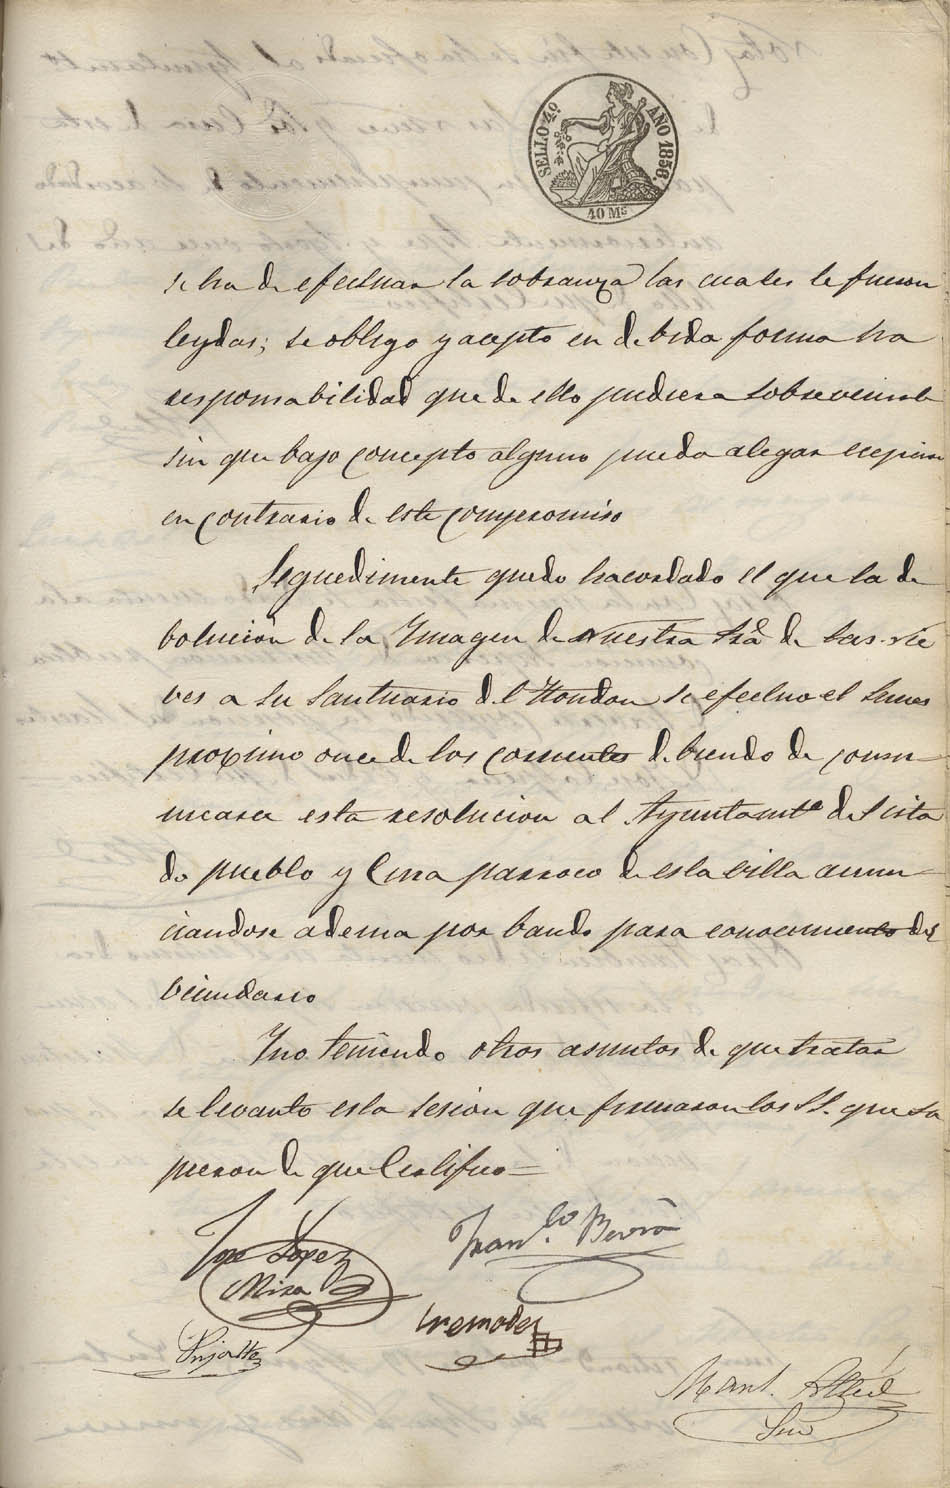 SELLO 4º AÑO 1856.
40 Ms
se ha de efectuar la cobranza las cuales le fueron
leydas; se obligo y acepto en debida forma ha
responsabilidad que de ello pudiera sobrevenirle
sin que bajo concepto alguno pueda alegar
en contrario de este compromiso
Seguedimente quedo hacordado el que la de
bolucion de la Ymagen de Nuestra Srâ de las Nie
ves a su Santuario del Hondon se efectuo el lunes
proximo once de los corrientes debiendo de comu
nicarse esta resolucion al Ayuntamtº de
do pueblo y Cura parroco de esta villa anun
ciandose adema por bando para conocimiento del
vecindario
Yno teniendo otros asuntos de que tratar
se levanto esta sesion que firmaron los SS. que su
pieron de que Certifico=
Jose Lopez
Mira
Franco.
Cremades
Manl.
Srio